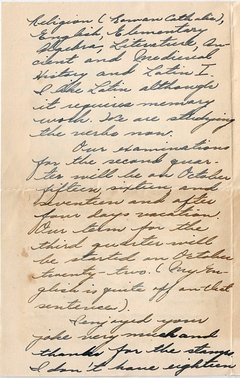 Religion (Roman Catholic),
English, Elementary
Algebra, Literature, An-
cient and Medieval
History and Latin I.
I like Latin although
it requires memory
work. We are studying
the verbs now.
Our examinations
for the second quar-
ter will be on October
fifteen, sixteen, and
seventeen and after
four days vacation.
Our term for the
third quarter will
be started on October
twenty-two. (My En-
glish is quite off in that
sentence).
I enjoyed your
joke very much and
thanks for the stamps
I don't have eighteen